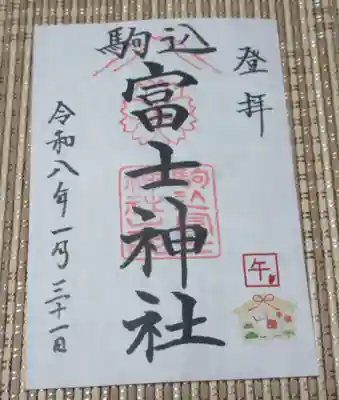 登拝
駒込
富士神社
午
令和八年一月三十一日